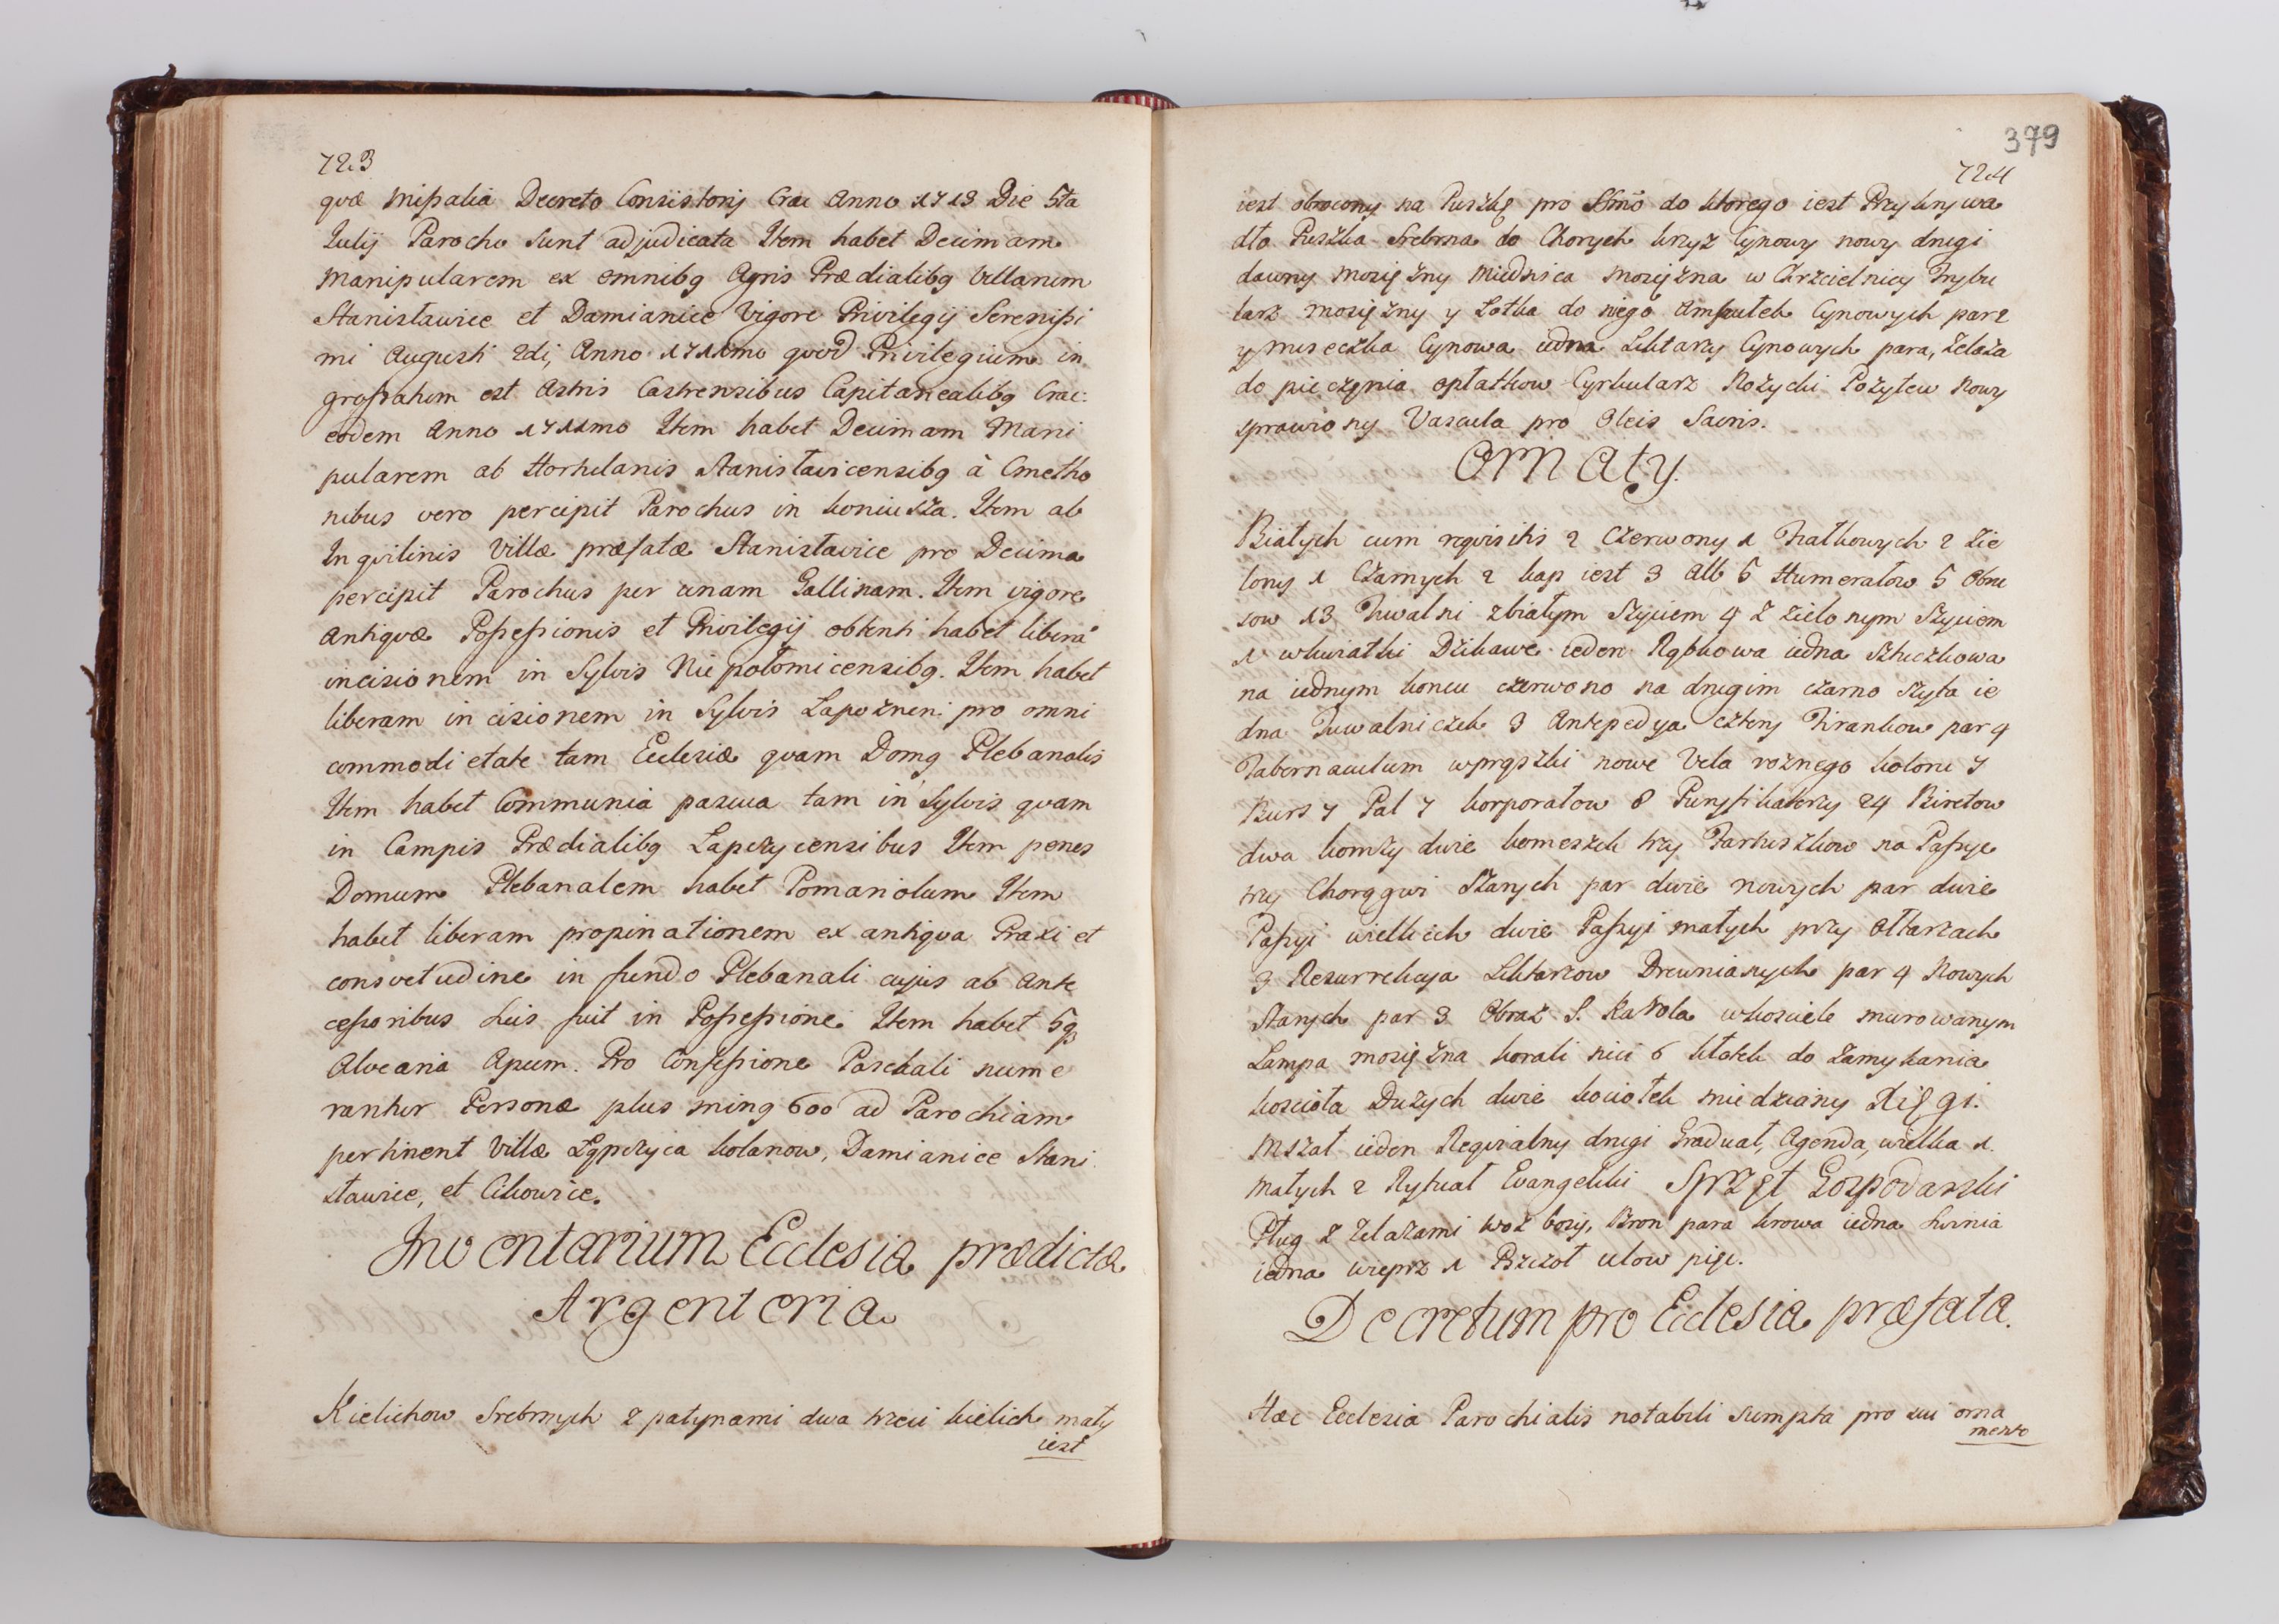 723
quæ Missalia Decreto Consistorij Crac Anno 1713 Die 5ta
Iulij Parocho sunt adjudicata Item habet Decimam
Manipularem ex omnibq Agris Prædialibq Villarum
Stanisławice et Damianice Vigore Privilegij Serenissi
mi Augusti 2di, Anno 1711mo quod Privilegium in
grossatum est Actis Castrensibus Capitanealibq Crac:
eodem Anno 1711mo Item habet Decimam Mani
pularem ab Hortulanis Stanisławicensibq à Cmetho
nibus vero percipit Parochus in Koniusza. Item ab
Inqvilinis Villæ præfatæ Stanisławice pro Decima
percipit Parochus per unam Gallinam. Item vigore
Antiquæ Possessionis et Privilegij obtenti habet liberā
incisionem in Sylvis Niepołomicensibq. Item habet
liberam incisionem in Sylvis Lapoznen: pro omni
commodietate tam Ecclesiæ quam Domq Plebanalis
Item habet Communia pascua tam in Sylvis quam
in Campis Prædialibq Lapczycensibus Item penes
Domum Plebanalem habet Pomariolum Item
habet liberam propinationem ex antiqua Praxi et
consvetudine in fundo Plebanali cujus ab Ante
cessoribus suis fuit in Possessione. Item habet 5q
Alvearia Apum. Pro Confessione Paschali nume
rantur Personæ plus minq 600 ad Parochiam
pertinent Villæ Łąpczyca Kolanow, Damianice Stani
sławice, et Cikowice.
Inventarium Ecclesiæ prædictæ
Argenteria
Kielichow Srebrnych z patynami dwa trzeci kielich mały
iest
379
724
iest obrocony na Puszkę pro SSmō do ktorego iest Przykrywa
dło Puszka Srebrna do Chorych krzyz Cynowy nowy drugi
dawny mosiężny Miednica mosiężna w Chrzcielnicy Trybu
larz mosiężny y Łotka do niego Ampułek Cynowych para
y miseczka Cynowa iedna Lihtarzy Cynowych para, żelaza
do pieczęnia opłatkow Cyrkularz Nożycki Pozytew Nowy
sprawiony Vascula pro Oleis Sacris.
Ornaty.
Białych cum requisitis 2 Czerwony 1 Fiałkowych 2 Zie
lony 1 Czarnych 2 kap iest 3 Alb 5 Humerałow 5 Obru
sow 13 Tuwalni zbiałym Szyciem 4 Z zielonym Szyciem
1 wkwiatki Dzikawe ieden Rąbkowa iedna Sztuczkowa
na iednym koncu czerwono na drugim czarno Szyta ie
dna Tuwalniczek 3 Antepedya cztery Firankow par 4
Tabernaculum wprąszki nowe Vela roznego koloru 7
Burs 7 Pal 7 Korporałow 8 Puryfikaterzy 24 Biretow
dwa komży dwie komeszek trzy Fartuszkow na Passye
trzy Chorągwi Starych par dwie nowych par dwie
Passyi wielkich dwie Passyi małych przy Ołtarzach
3 Resurrekcya Lihtarzow Drewnianych par 4 Nowych
Starych par 3 Obraz S. Karola wkosciele murowanym
Lampa mosiężna korali nici 6 kłotek do zamykania
koscioła Duzych dwie kociołek miedziany Xięgi.
Mszał ieden Reqvialny drugi Graduał, Agenda, wielka 1.
Małych 2 Rytuał Ewangeliki Sprzęt Gospodarski
Pług z zelazami woz bosy, Bron para krowa iedna Swinia
iedna wieprz 1 Pszczoł ulow pięc.
Decretum pro Ecclesia præfata.
Hæc Ecclesia Parochialis notabili sumpta pro sui orna
mento